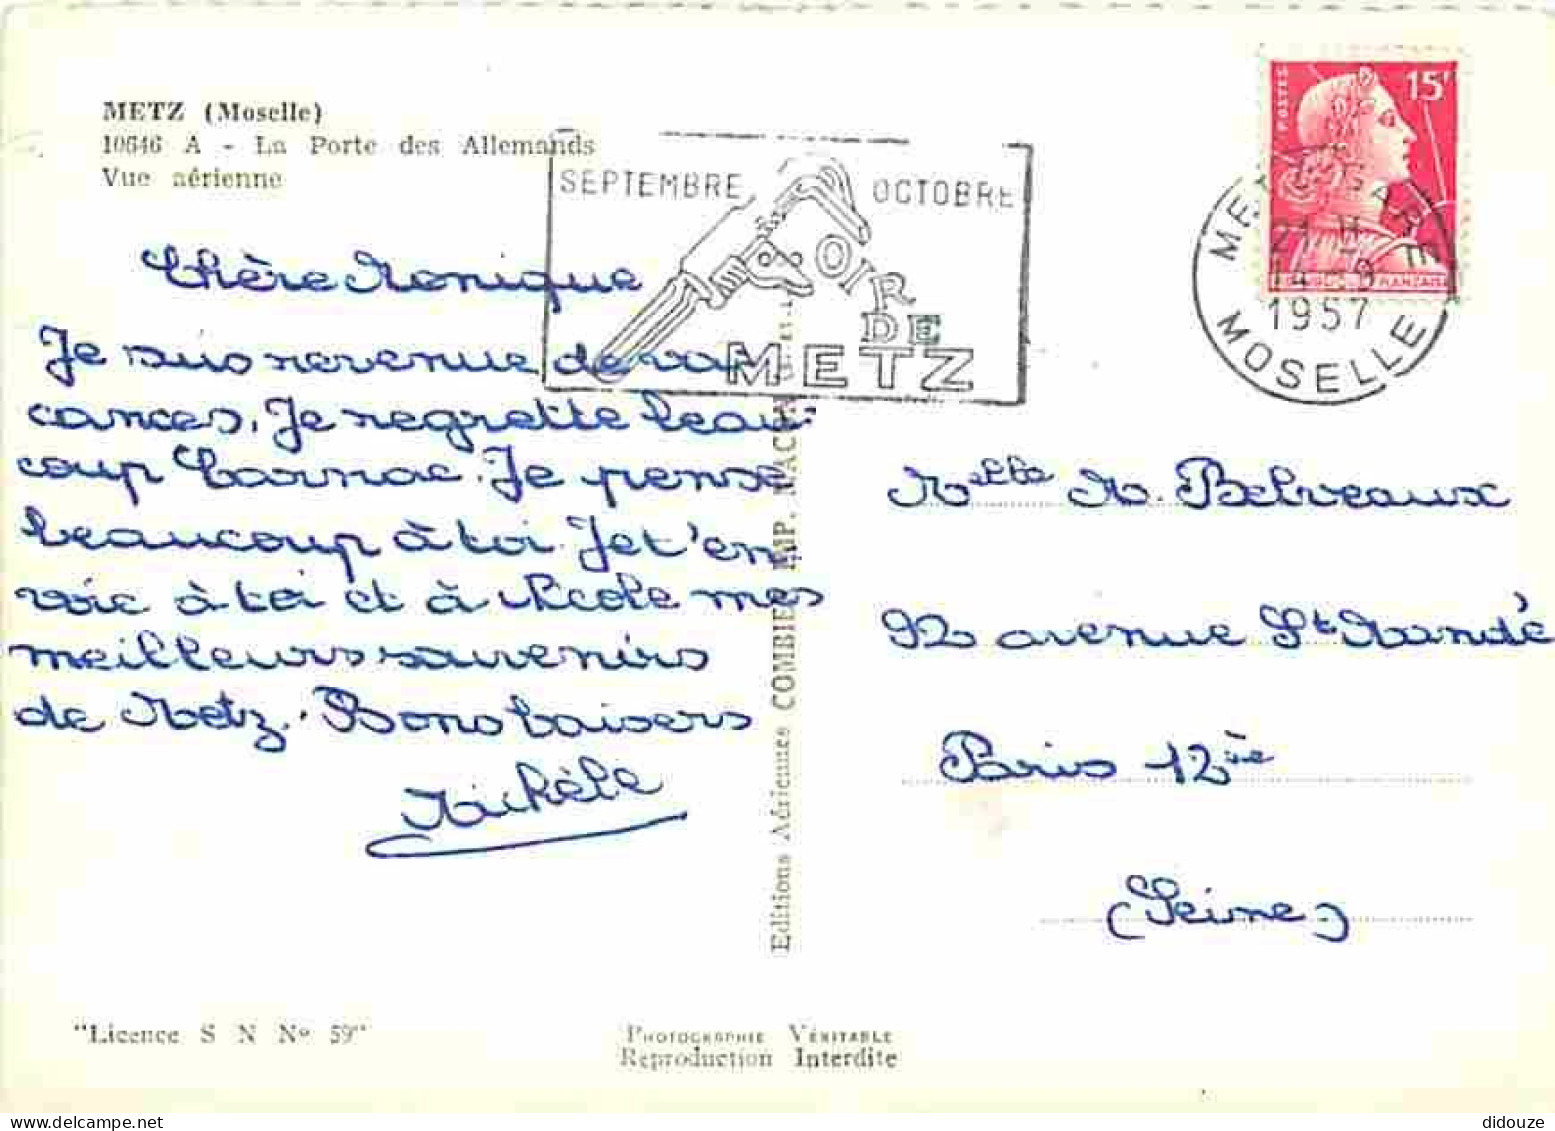 METZ (Moselle)
10646 A - La Porte des Allemands
Vue aérienne
SEPTEMBRE OCTOBRE
FOIR
DE
METZ
POSTES
15F
METZ-GARE
21 H
14 -9
1957
MOSELLE
Chère Monique
Je suis revenue de va
cances. Je regrette beau-
coup Carnac. Je pense
beaucoup à toi. Je t'en
voie à toi et à Nicole mes
meilleurs souvenirs
de Metz. Bons baisers
Michèle
Melle M. Belveaux
92 avenue St Mandé
Paris 12ème
(Seine)
Editions Aériennes COMBIER IMP. MACON
"Licence S N No 59"
PHOTOGRAPHIE VÉRITABLE
Reproduction Interdite
didouze